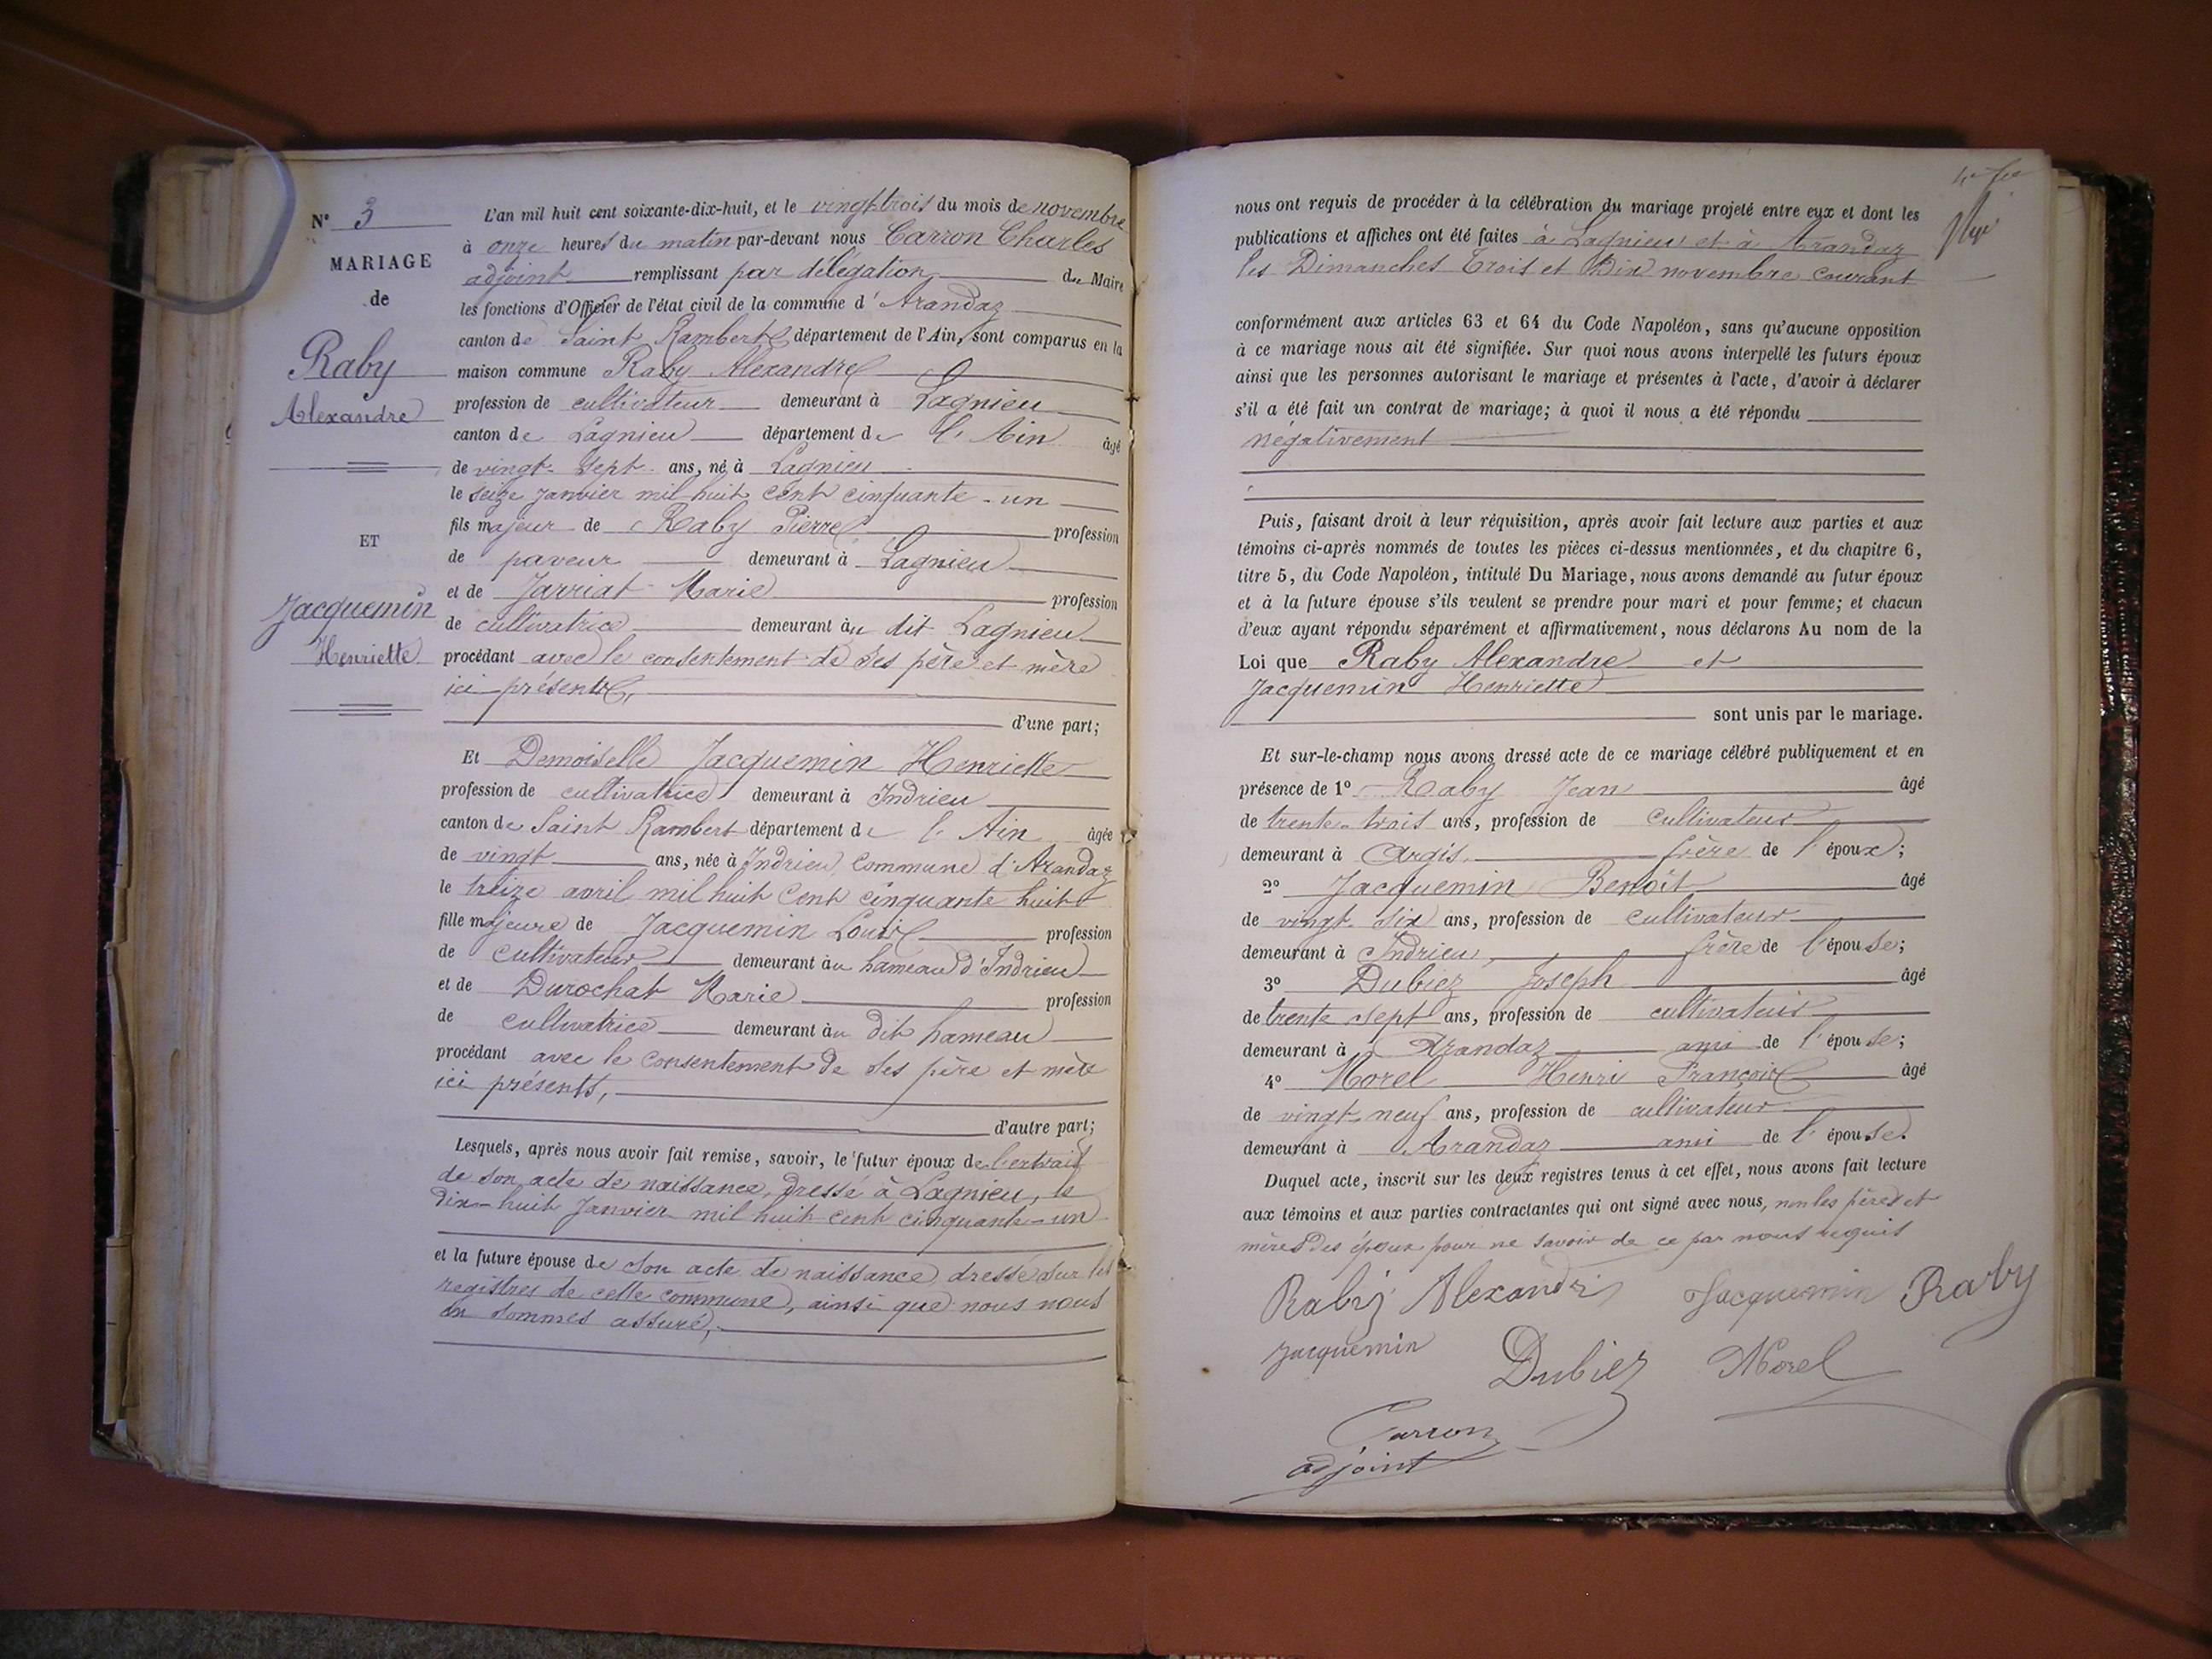 N° 3
MARIAGE
de
Raby
Alexandre
ET
Jacquemin
Henriette
L'an mil huit cent soixante-dix-huit, et le vingt trois du mois de novembre
à onze heures du matin par-devant nous Carron Charles
adjoint remplissant par délégation du Maire
les fonctions d'Officier de l'état civil de la commune d'Arandaz
canton de Saint Rambert département de l'Ain, sont comparus en la
maison commune Raby Alexandre
profession de cultivateur demeurant à Lagnieu
canton de Lagnieu département de l'Ain âgé
de vingt-sept ans, né à Lagnieu
le seize janvier mil huit cent cinquante-un
fils majeur de Raby Pierre profession
de paveur demeurant à Lagnieu
et de Jarriat Marie profession
de cultivatrice demeurant au dit Lagnieu
procédant avec le consentement de ses père et mère
ici présents,
d'une part;
Et Demoiselle Jacquemin Henriette
profession de cultivatrice demeurant à Indrieu
canton de Saint Rambert département de l'Ain âgée
de vingt ans, née à Indrieu, commune d'Arandaz
le treize avril mil huit cent cinquante huit
fille majeure de Jacquemin Louis profession
de cultivateur demeurant au hameau d'Indrieu
et de Durochat Marie profession
de cultivatrice demeurant au dit hameau
procédant avec le consentement de ses père et mère
ici présents,
d'autre part;
Lesquels, après nous avoir fait remise, savoir, le futur époux de l'extrait
de son acte de naissance, dressé à Lagnieu, le
dix-huit Janvier mil huit cent cinquante-un
et la future épouse de son acte de naissance dressé sur les
registres de cette commune, ainsi que nous nous
en sommes assuré,
nous ont requis de procéder à la célébration du mariage projeté entre eux et dont les
publications et affiches ont été faites à Lagnieu et à Arandaz
les Dimanches Trois et Dix novembre courant
conformément aux articles 63 et 64 du Code Napoléon, sans qu'aucune opposition
à ce mariage nous ait été signifiée. Sur quoi nous avons interpellé les futurs époux
ainsi que les personnes autorisant le mariage et présentes à l'acte, d'avoir à déclarer
s'il a été fait un contrat de mariage; à quoi il nous a été répondu
négativement
Puis, faisant droit à leur réquisition, après avoir fait lecture aux parties et aux
témoins ci-après nommés de toutes les pièces ci-dessus mentionnées, et du chapitre 6,
titre 5, du Code Napoléon, intitulé Du Mariage, nous avons demandé au futur époux
et à la future épouse s'ils veulent se prendre pour mari et pour femme; et chacun
d'eux ayant répondu séparément et affirmativement, nous déclarons Au nom de la
Loi que Raby Alexandre et
Jacquemin Henriette
sont unis par le mariage.
Et sur-le-champ nous avons dressé acte de ce mariage célébré publiquement et en
présence de 1° Raby Jean âgé
de trente-trois ans, profession de cultivateur
demeurant à Argis, frère de l'époux;
2° Jacquemin Benoît âgé
de vingt-six ans, profession de cultivateur
demeurant à Indrieu, frère de l'épouse;
3° Dubiez Joseph âgé
de trente sept ans, profession de cultivateur
demeurant à Arandaz ami de l'épouse;
4° Morel Henri François âgé
de vingt-neuf ans, profession de cultivateur
demeurant à Arandaz ami de l'épouse.
Duquel acte, inscrit sur les deux registres tenus à cet effet, nous avons fait lecture
aux témoins et aux parties contractantes qui ont signé avec nous, non les pères et
mères des époux pour ne savoir de ce par nous requis
Raby Alexandre Jacquemin Raby
Jacquemin Dubiez Morel
Carron
adjoint